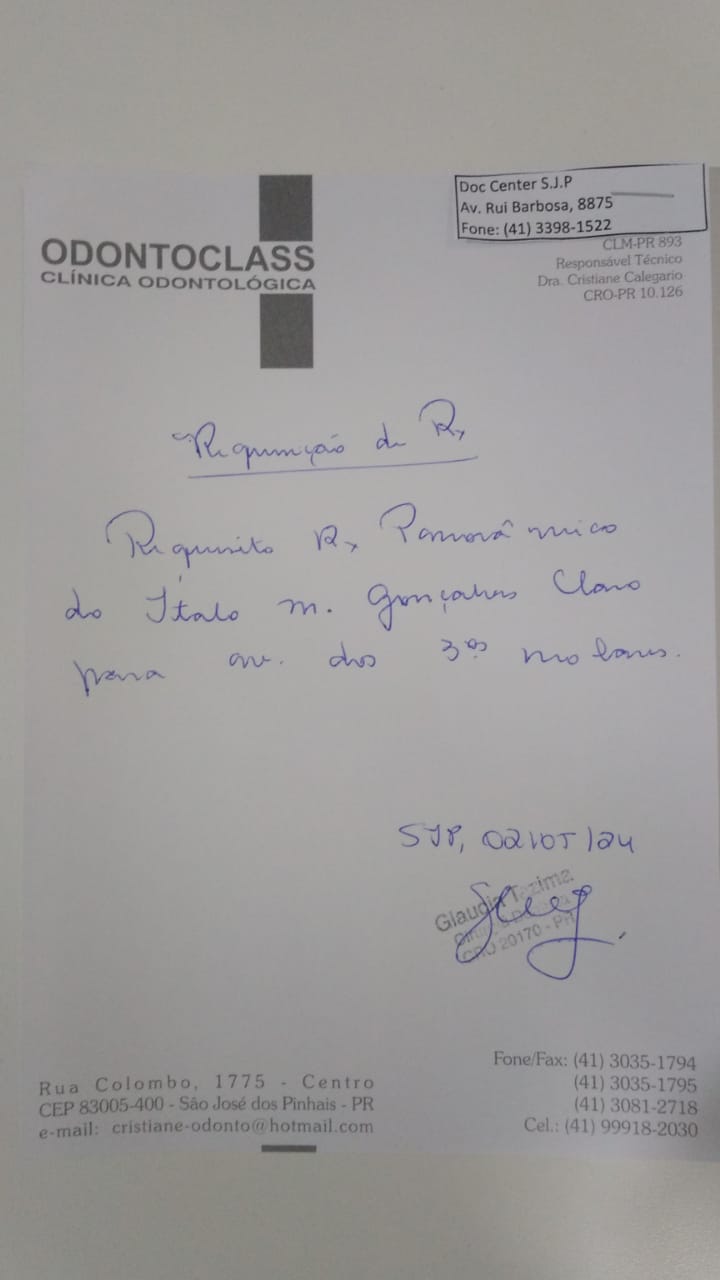 Doc Center S.J.P
Av. Rui Barbosa, 8875
Fone: (41) 3398-1522
ODONTOCLASS
CLÍNICA ODONTOLÓGICA
CLM-PR 893
Responsável Técnico
Dra. Cristiane Calegario
CRO-PR 10.126
Requisição de Rx
Requisito Rx Panorâmico
do Ítalo M. Gonçalves Claro
para av. dos 3ºs molares.
SJP, 02/05/24
Glaudia T. 
CRO 20170 - PR
Rua Colombo, 1775 - Centro
CEP 83005-400 - São José dos Pinhais - PR
e-mail: cristiane-odonto@hotmail.com
Fone/Fax: (41) 3035-1794
(41) 3035-1795
(41) 3081-2718
Cel.: (41) 99918-2030